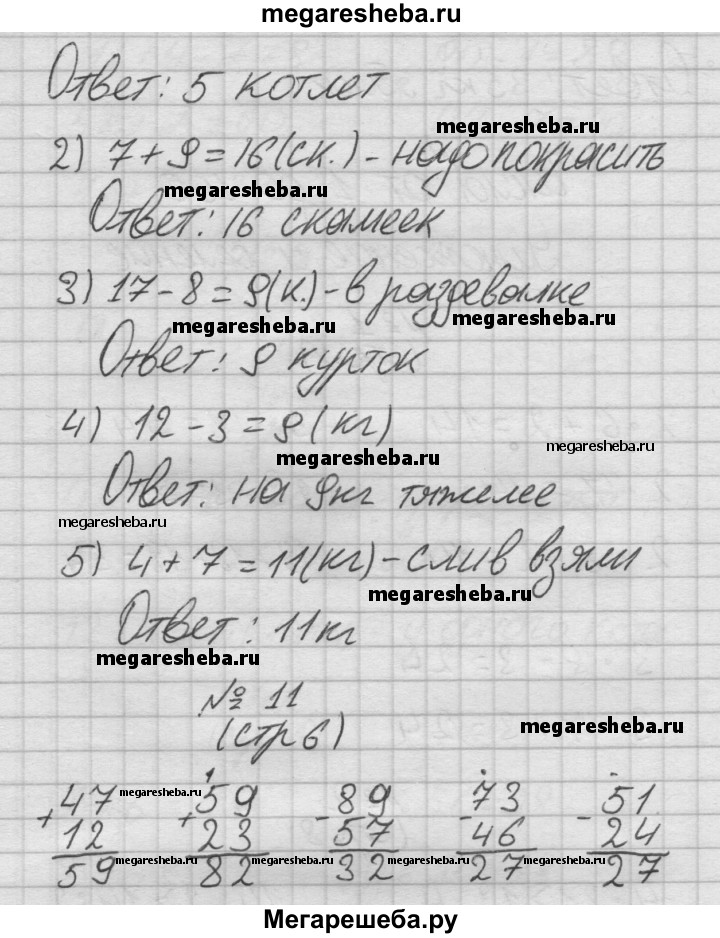 megaresheba.ru
Ответ: 5 котлет
megaresheba.ru
2) 7 + 9 = 16 (ск.) - надо покрасить
megaresheba.ru
Ответ: 16 скамеек
3) 17 - 8 = 9 (к.) - в раздевалке
megaresheba.ru megaresheba.ru
Ответ: 9 курток
4) 12 - 3 = 9 (кг)
megaresheba.ru megaresheba.ru
Ответ: на 9кг тяжелее
megaresheba.ru
5) 4 + 7 = 11 (кг) - слив взяли
megaresheba.ru
Ответ: 11кг
megaresheba.ru
№ 11
(стр 6) megaresheba.ru
1
+ 47 megaresheba.ru + 59 - 89 - 73 - 51
12 23 57 46 24
59 megaresheba.ru 82 megaresheba.ru 32 megaresheba.ru 27 megaresheba.ru 27
Мегарешеба.ру